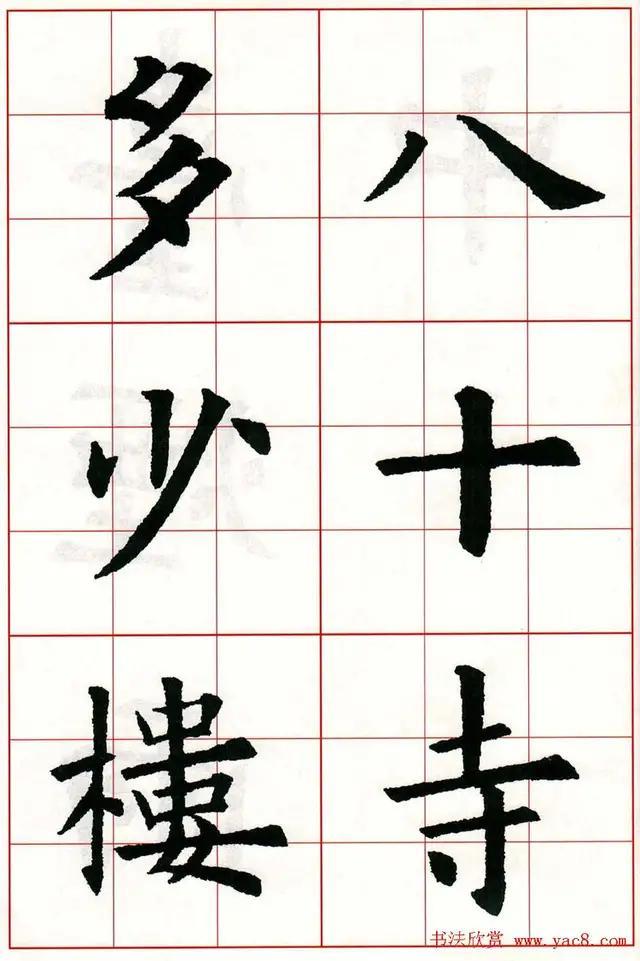 八十寺
多少樓
书法欣赏 www.yac8.com